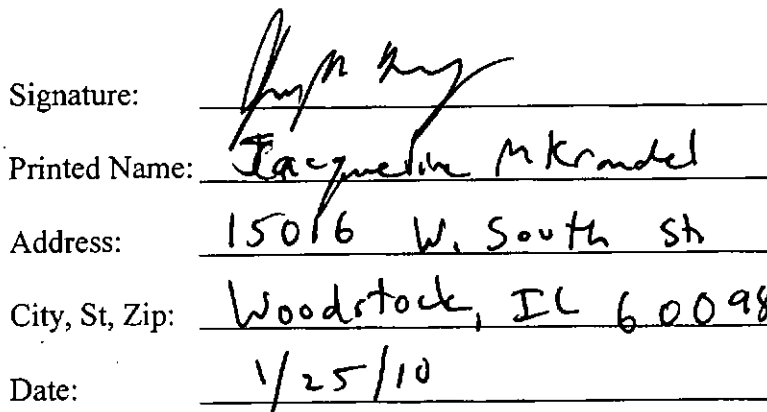 Signature:
Printed Name: Jacqueline M Krandel
Address: 15016 W. South St
City, St, Zip: Woodstock, IL 60098
Date: 1/25/10